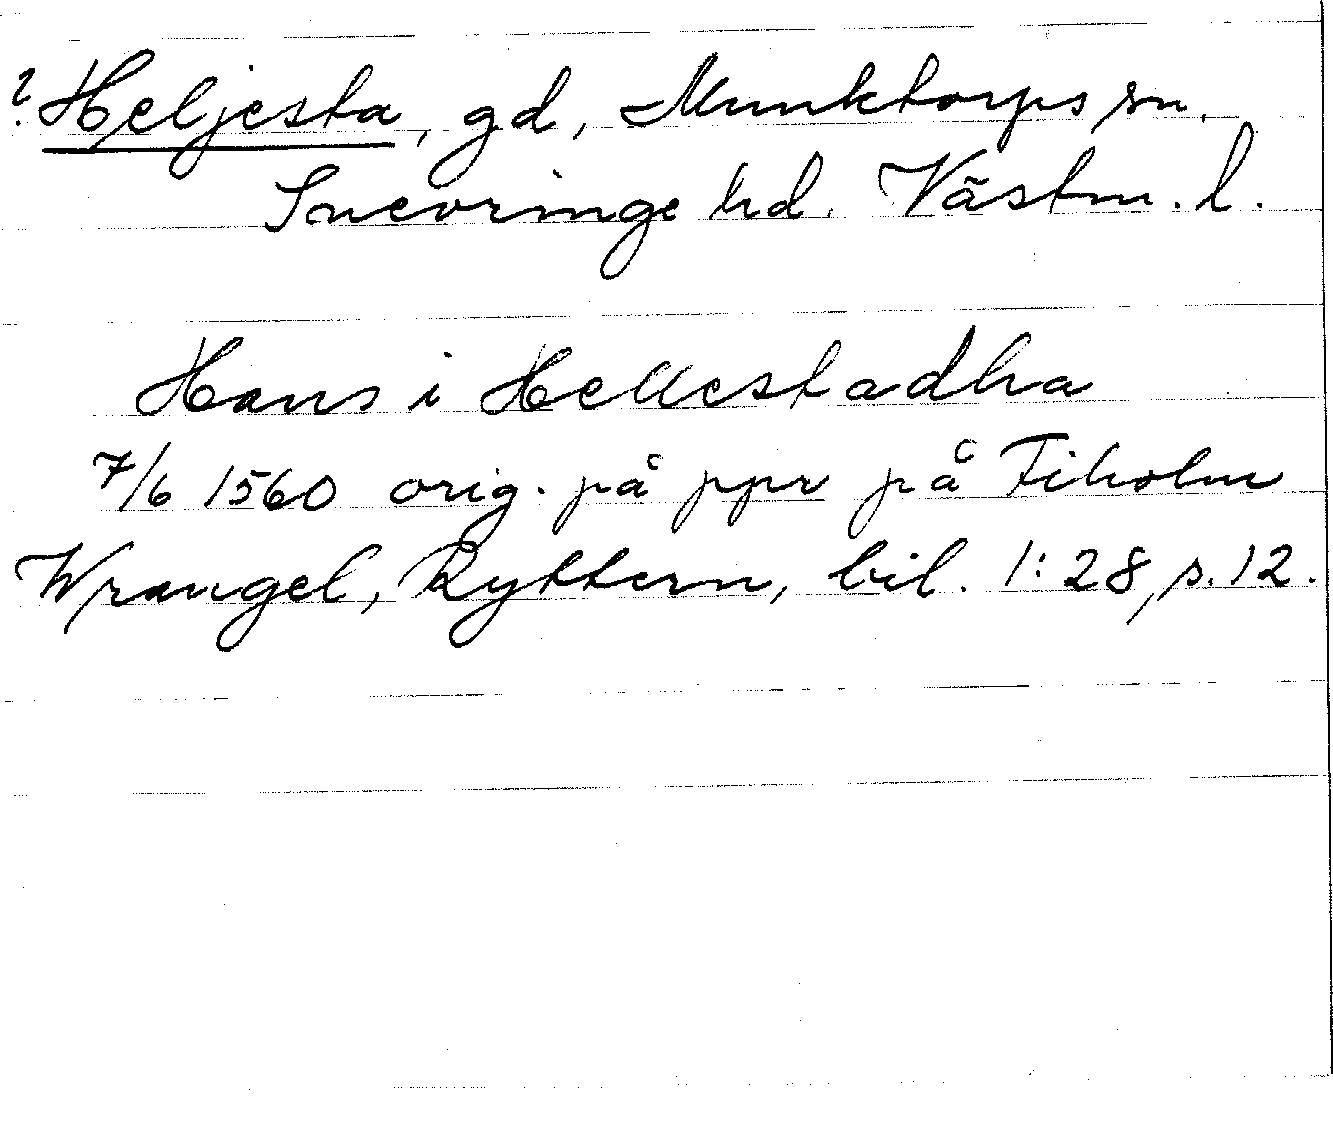 ? Heljesta, gd, Munktorps sn.
Snevringe hd. Västm. l.
Hans i Hellestadha
7/6 1560 orig. på ppr på Fiholm
Wrangel, Ryttern, bil. 1:28, s. 12.